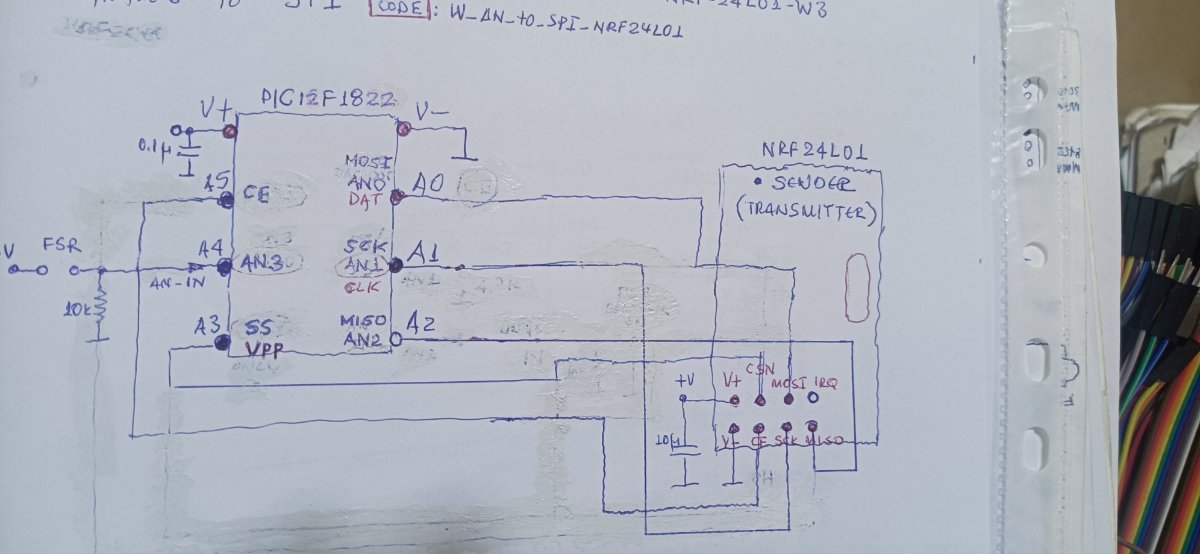 CODE: W_AN_to_SPI_NRF24L01
PIC12F1822
V+
V-
0.1µ
NRF24L01
MOSI
A5
CE
AN0
A0
DAT
• SENDER
(TRANSMITTER)
V
FSR
A4
AN3
SCK
AN1
A1
CLK
AN-IN
10k
A3
SS
VPP
MISO
AN2
A2
+V
V+
CSN
MOSI
IRQ
10µ
V-
CE
SCK
MISO